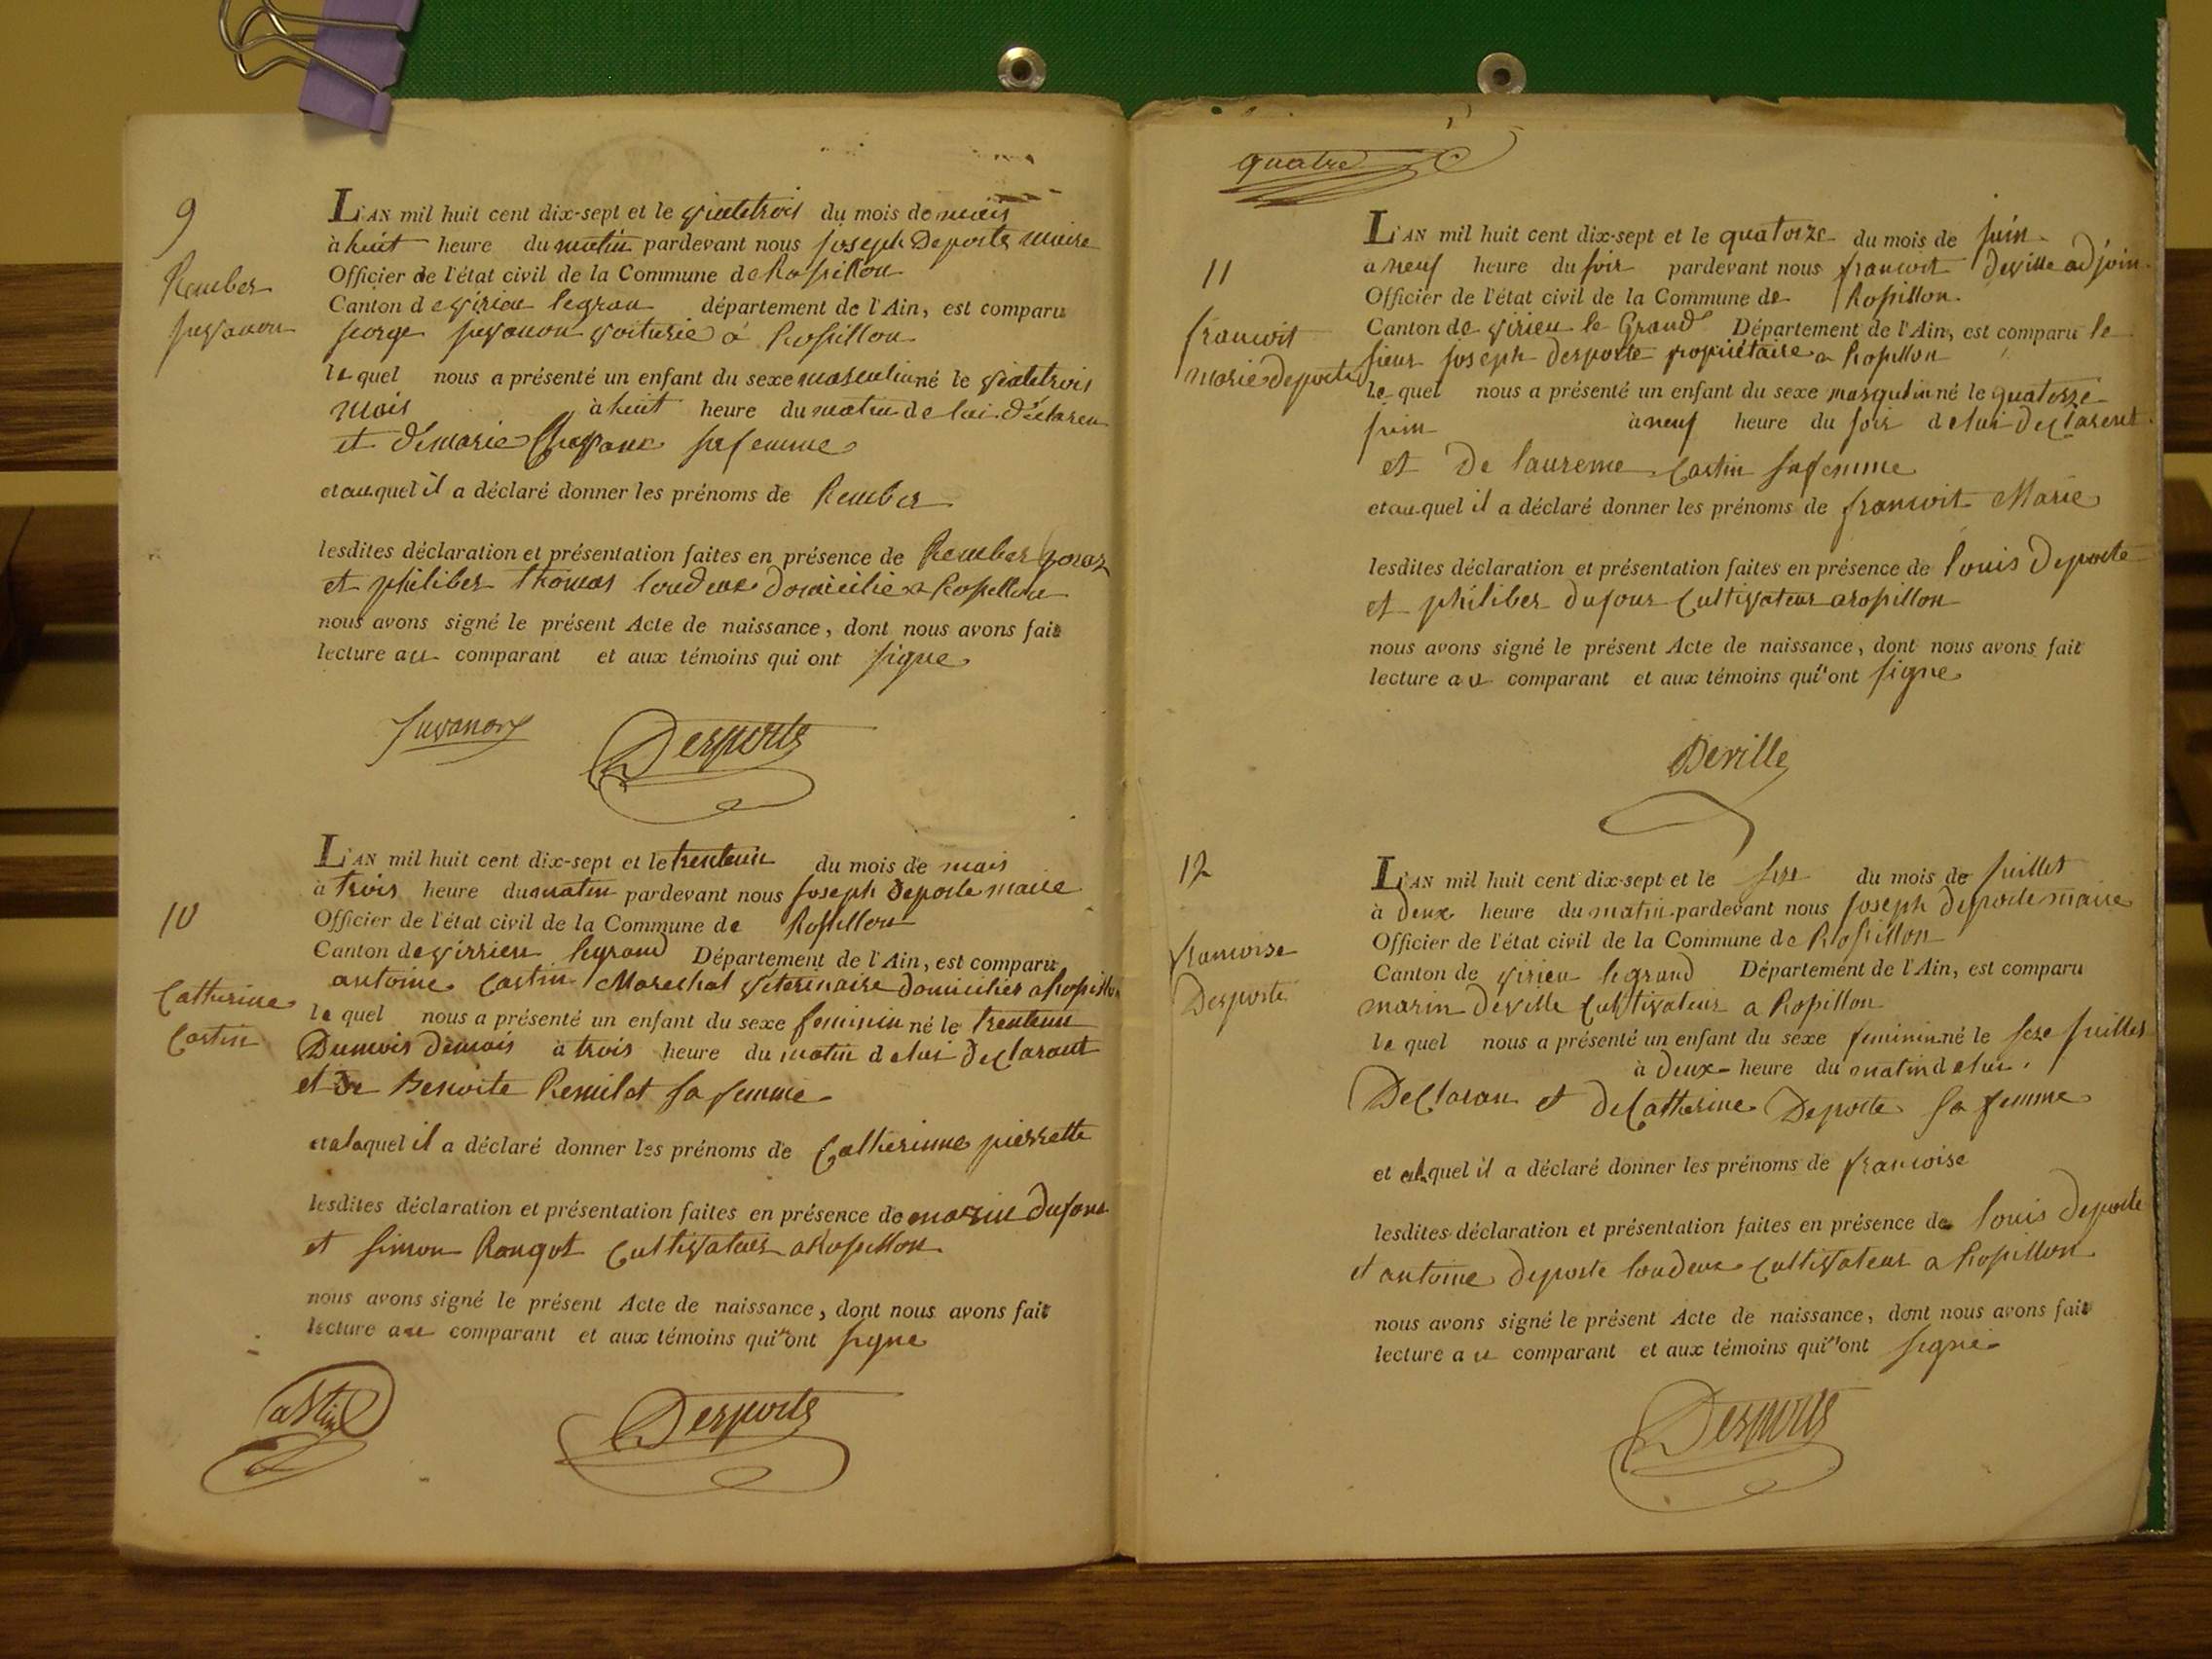 9
Rember
juvanon
L'AN mil huit cent dix-sept et le vintetrois du mois de mais
à huit heure du matin pardevant nous joseph Deporte maire
Officier de l'état civil de la Commune de Rossillon
Canton de virieu legran département de l'Ain, est comparu
jorge juvanon voiturié à Rossillon
le quel nous a présenté un enfant du sexe masculin né le vintetrois
mais à huit heure du matin de lui déclaren
et de marie sa femme
et au quel il a déclaré donner les prénoms de Rember
lesdites déclaration et présentation faites en présence de Rember
et philiber thomas toudeux domicilié a Rossillon
nous avons signé le présent Acte de naissance, dont nous avons fait
lecture au comparant et aux témoins qui ont signe
Juvanon Desporte
10
Catherine
Castin
L'AN mil huit cent dix-sept et le trenteun du mois de mais
à trois heure du matin pardevant nous joseph deporte maire
Officier de l'état civil de la Commune de Rossillon
Canton de virrieu legrand Département de l'Ain, est comparu
antoine castin Mareschal veterinaire domicilier a Rossillon
le quel nous a présenté un enfant du sexe feminin né le trenteun
Dumois demais à trois heure du matin de lui declarant
et de Benoite Remilot sa femme
et a laquel il a déclaré donner les prénoms de Catherinne pierrette
lesdites déclaration et présentation faites en présence de marin dufour
et simon Rougot cultivateur a Rossillon
nous avons signé le présent Acte de naissance, dont nous avons fait
lecture au comparant et aux témoins qui ont signe
Castin Desporte
quatre
11
francoit
marie deporte
L'AN mil huit cent dix-sept et le quatorze du mois de juin
a neuf heure du soir pardevant nous francoit deville adjoin
Officier de l'état civil de la Commune de Rossillon
Canton de virieu le Grand Département de l'Ain, est comparu le
sieur joseph desporte propriétaire a Rossillon
le quel nous a présenté un enfant du sexe masqulin né le quatorze
juin à neuf heure du soir de lui declarent
et De laurenne castin sa femme
et au quel il a déclaré donner les prénoms de francoit Marie
lesdites déclaration et présentation faites en présence de louis deporte
et philiber dufour cultivateur a rossillon
nous avons signé le présent Acte de naissance, dont nous avons fait
lecture au comparant et aux témoins qui n'ont signe
Deville
12
francoise
Desporte
L'AN mil huit cent dix-sept et le seze du mois de juillet
à deux heure du matin pardevant nous joseph deporte maire
Officier de l'état civil de la Commune de Rossillon
Canton de virieu legrand Département de l'Ain, est comparu
marin deville cultivateur a Rossillon
le quel nous a présenté un enfant du sexe feminin né le seze juillet
à deux heure du matin de lui
Declaran et de Catherine Deporte sa femme
et alaquel il a déclaré donner les prénoms de francoise
lesdites déclaration et présentation faites en présence de louis deporte
et antoine deporte toudeux cultivateur a Rossillon
nous avons signé le présent Acte de naissance, dont nous avons fait
lecture au comparant et aux témoins qui n'ont signe
Desporte